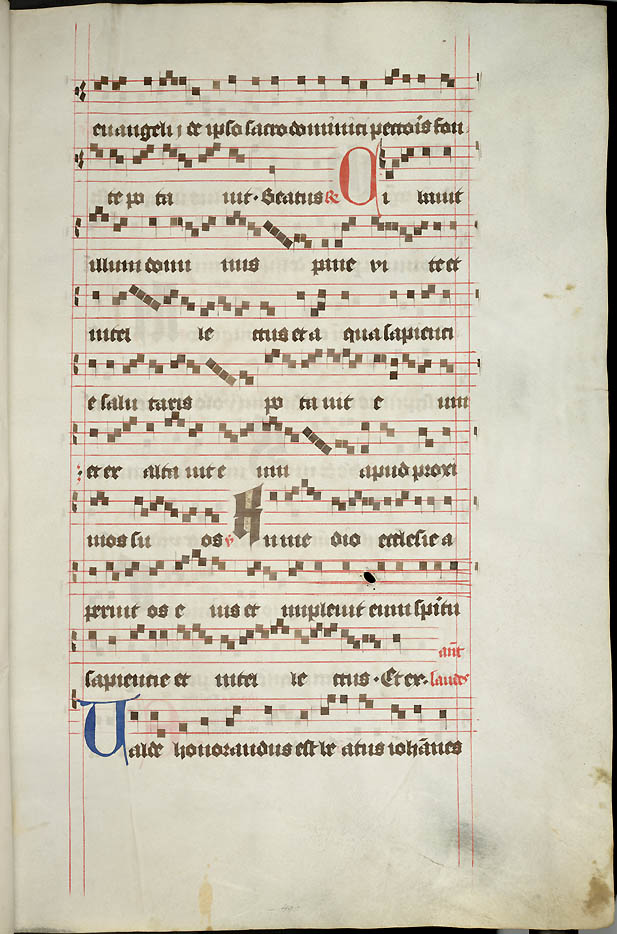 euangelij de ipso sacro dominici pectoris fon
te po ta uit · Beatus R C i bauit
illum domi nus pane vi te et
intel le ctus et a qua sapienci
e salu taris po ta uit e um
et ex alta uit e um apud proxi
mos su os v I n me dio ecclesie a
peruit os e ius et impleuit eum spiritu
sapiencie et intel le ctus · Et ex · ant laudes
U alde honorandus est be atus iohannes